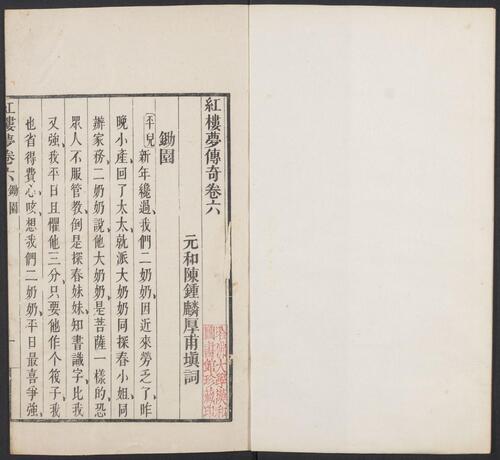 紅樓夢傳奇卷六
元和陳鍾麟厚甫塡詞
鋤園
平兒新年纔過、我們二奶奶、因近來勞乏了、昨
晚小產、回了太太、就派大奶奶同探春小姐、同
辦家務、二奶奶說、他大奶奶、是菩薩一樣的、恐
眾人不服管教、倒是探春妹妹、知書識字、比我
又強、我平日且懼他三分、只要他作个筏子、我
也省得費心、咳、想我們二奶奶、平日最喜爭強、
紅樓夢卷六 鋤園
一
哈佛大學漢和
圖書館珍藏印